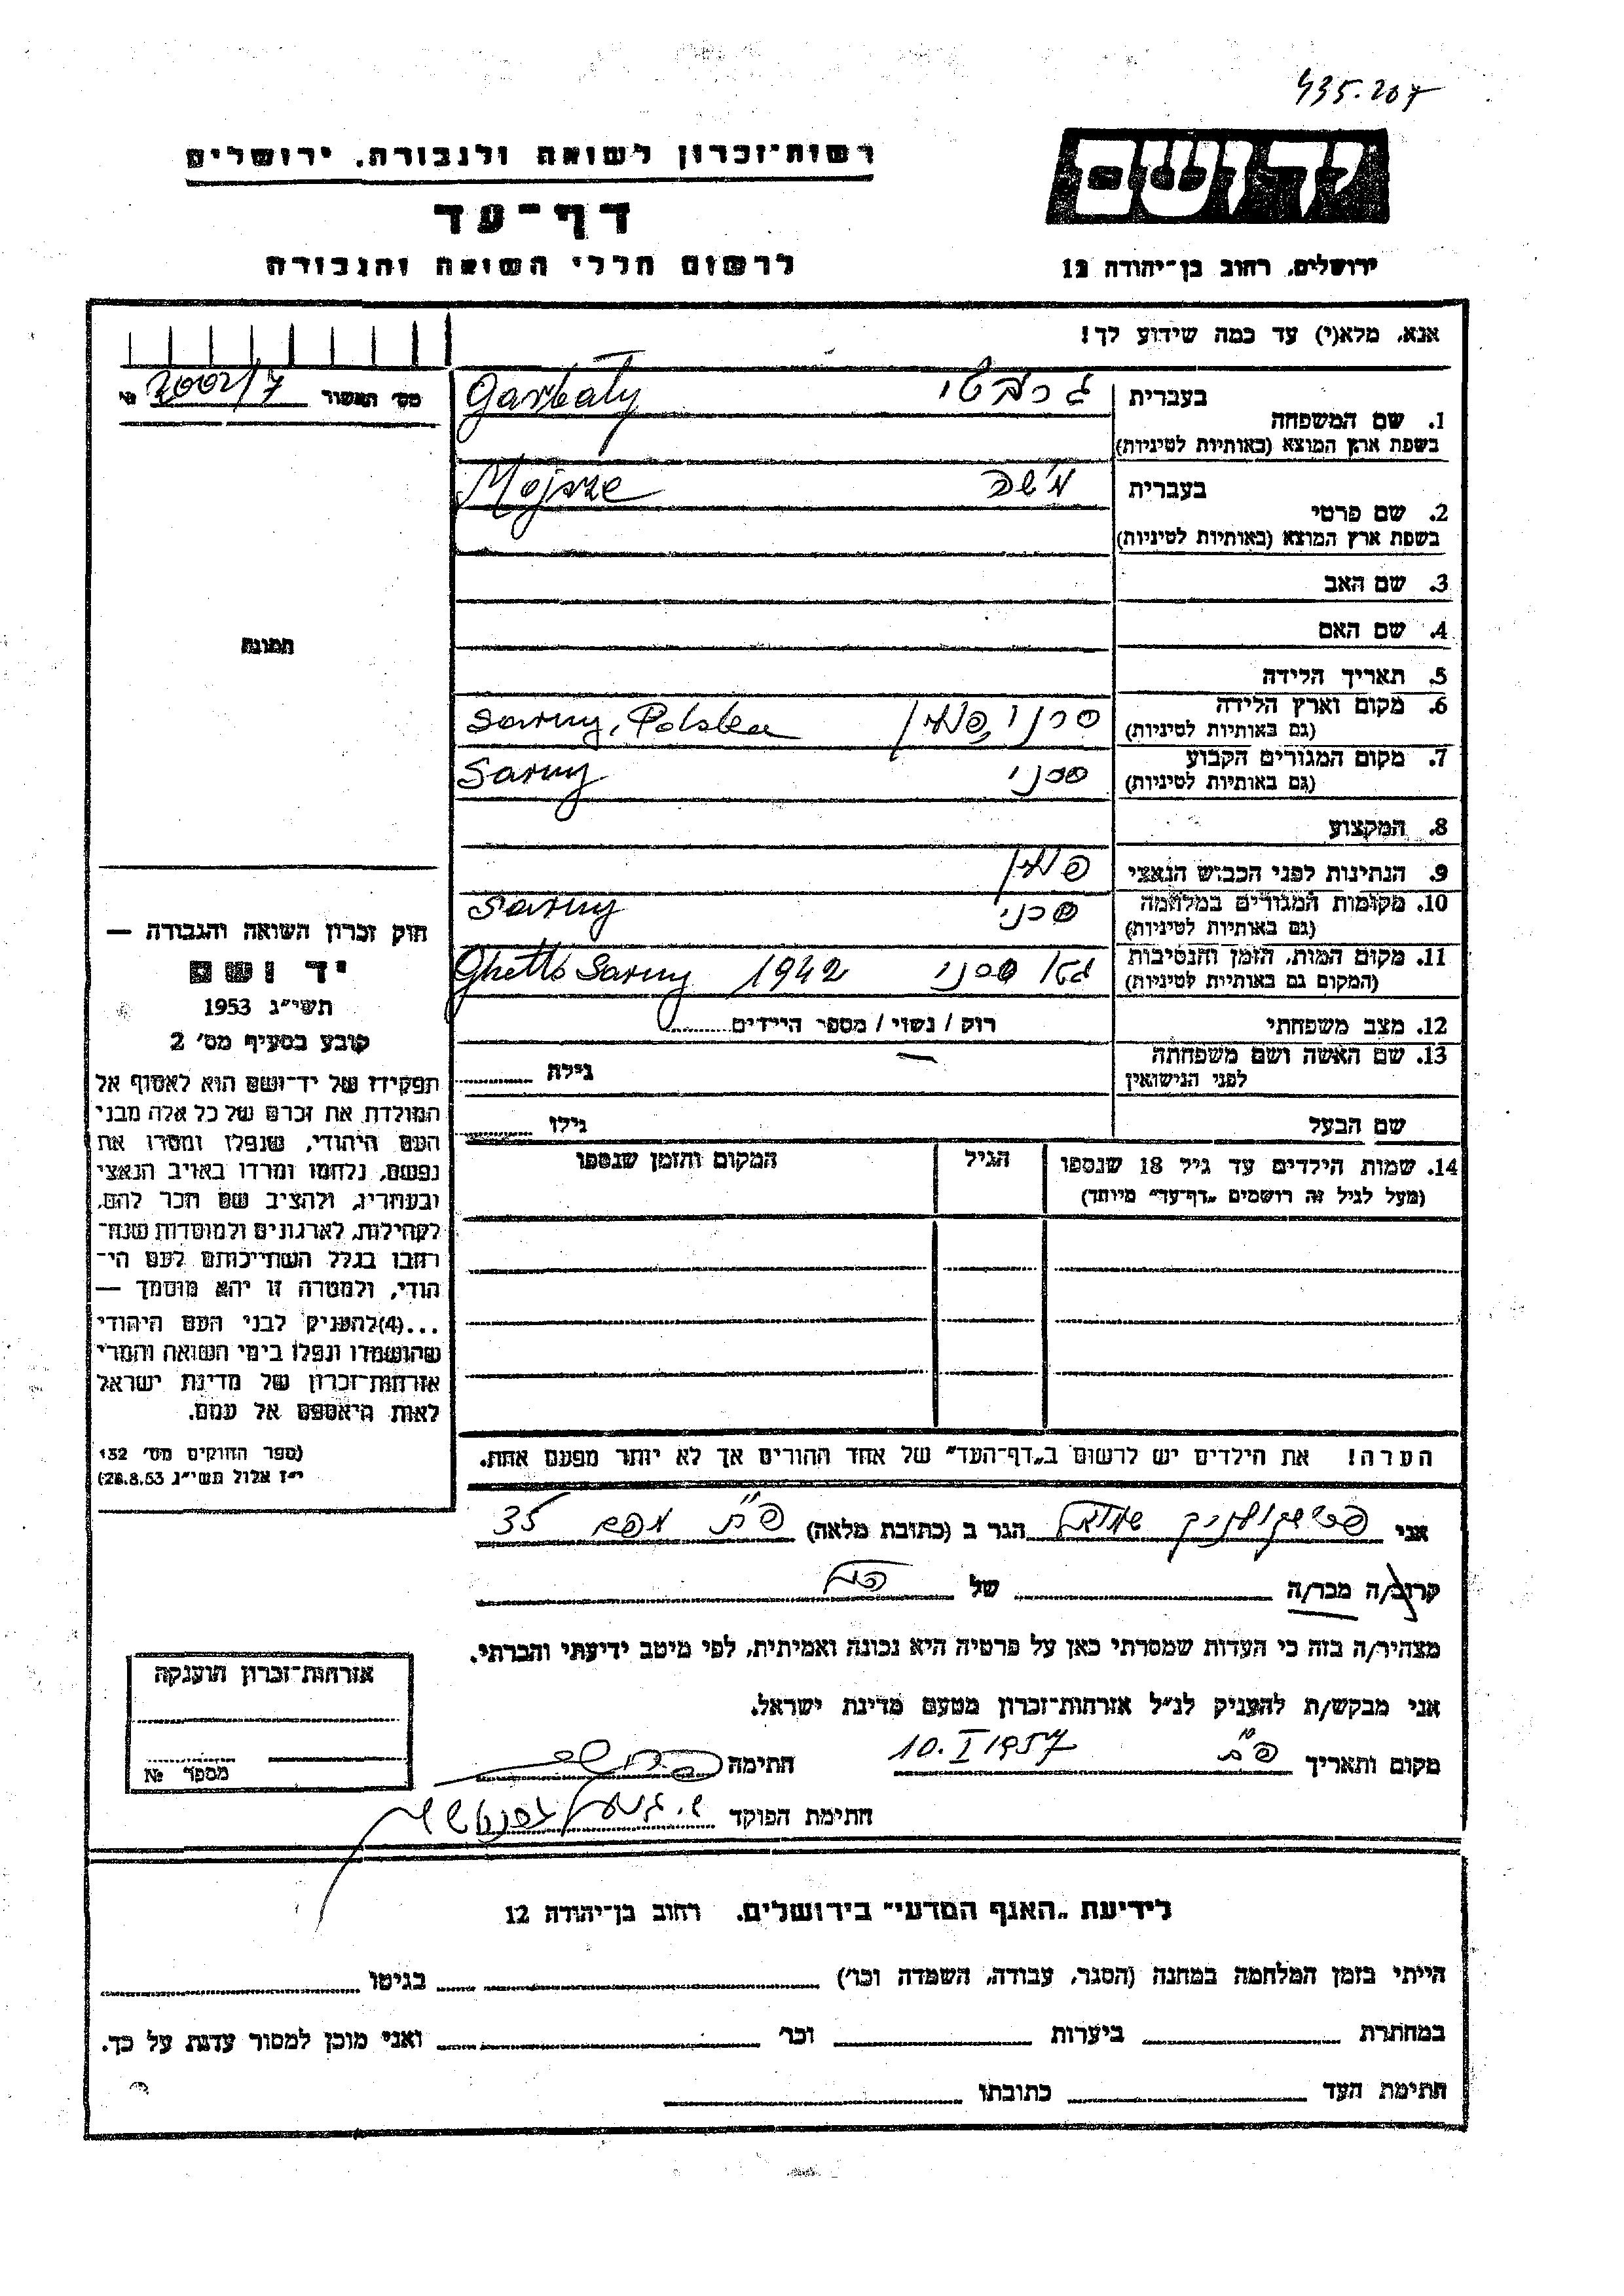 435.207
רשות־זכרון לשואה ולגבורה, ירושלים
יד ושם
דף־עד
לרשום חללי השואה והגבורה
ירושלים, רחוב בן־יהודה 12
אנא, מלא(י) עד כמה שידוע לך!
מס' תאשור 2002/7
1. שם המשפחה
בעברית גרבטי
בשפת ארץ המוצא (באותיות לטיניות) Garbaty
2. שם פרטי
בעברית משה
בשפת ארץ המוצא (באותיות לטיניות) Mojsze
3. שם האב
4. שם האם
תמונה
5. תאריך הלידה
6. מקום וארץ הלידה סרני, פולין Sarny, Polska
(גם באותיות לטיניות)
7. מקום המגורים הקבוע סרני Sarny
(גם באותיות לטיניות)
8. המקצוע
9. הנתינות לפני הכבוש הנאצי פולין
10. מקומות המגורים במלחמה סרני Sarny
(גם באותיות לטיניות)
11. מקום המות, הזמן והנסיבות גטו סרני 1942 Ghetto Sarny
(המקום גם באותיות לטיניות)
12. מצב משפחתי רווק / נשוי / מספר הילדים
13. שם האשה ושם משפחתה
לפני הנישואין
גילה
שם הבעל גילו
14. שמות הילדים עד גיל 18 שנספו הגיל המקום והזמן שנספו
(מעל לגיל זה רושמים „דף־עד" מיוחד)
חוק זכרון השואה והגבורה —
יד ושם
תשי"ג 1953
קובע בסעיף מס' 2
תפקידו של יד־ושם הוא לאסוף אל
המולדת את זכרם של כל אלה מבני
העם היהודי, שנפלו ומסרו את
נפשם, נלחמו ומרדו באויב הנאצי
ובעוזריו, ולהציב שם וזכר להם,
לקהילות, לארגונים ולמוסדות שנח־
רבו בגלל השתייכותם לעם הי־
הודי, ולמטרה זו יהא מוסמך —
...(4) להעניק לבני העם היהודי
שהושמדו ונפלו בימי השואה והמרי
אזרחות־זכרון של מדינת ישראל
לאות היאספם אל עמם.
(ספר החוקים מס' 132
י"ז אלול תשי"ג 28.8.53)
הערה! את הילדים יש לרשום ב„דף־העד" של אחד ההורים אך לא יותר מפעם אחת.
אני שמואל הגר ב (כתובת מלאה) פ"ת 35
קרוב/ה מכר/ה של
מצהיר/ה בזה כי העדות שמסרתי כאן על פרטיה היא נכונה ואמיתית, לפי מיטב ידיעתי והכרתי.
אני מבקש/ת להעניק לנ"ל אזרחות־זכרון מטעם מדינת ישראל.
מקום ותאריך פ"ת 10.I 1957 חתימה
חתימת הפוקד
אזרחות־זכרון הוענקה
מספר №
לידיעת „האגף המדעי" בירושלים, רחוב בן־יהודה 12
הייתי בזמן המלחמה במחנה (הסגר, עבודה, השמדה וכו') בגיטו
במחתרת ביערות וכו' ואני מוכן למסור עדות על כך.
חתימת העד כתובתו